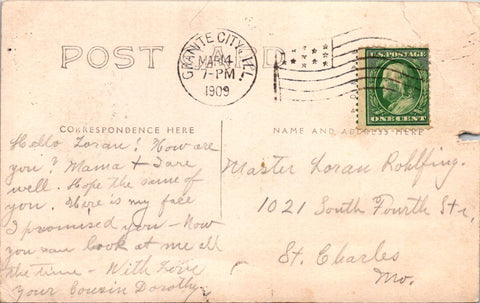 POST CARD
GRANITE CITY, ILL.
MAR 4
7-PM
1909
U.S. POSTAGE
ONE CENT
CORRESPONDENCE HERE
NAME AND ADDRESS HERE
Hello Loran! How are
you? Mama + I are
well. Hope the same of
you. Here is my face
I promised you - Now
you can look at me all
the time - With Love
your Cousin Dorothy
Master Loran Rohlfing.
1021 South Fourth St,
St. Charles
Mo.